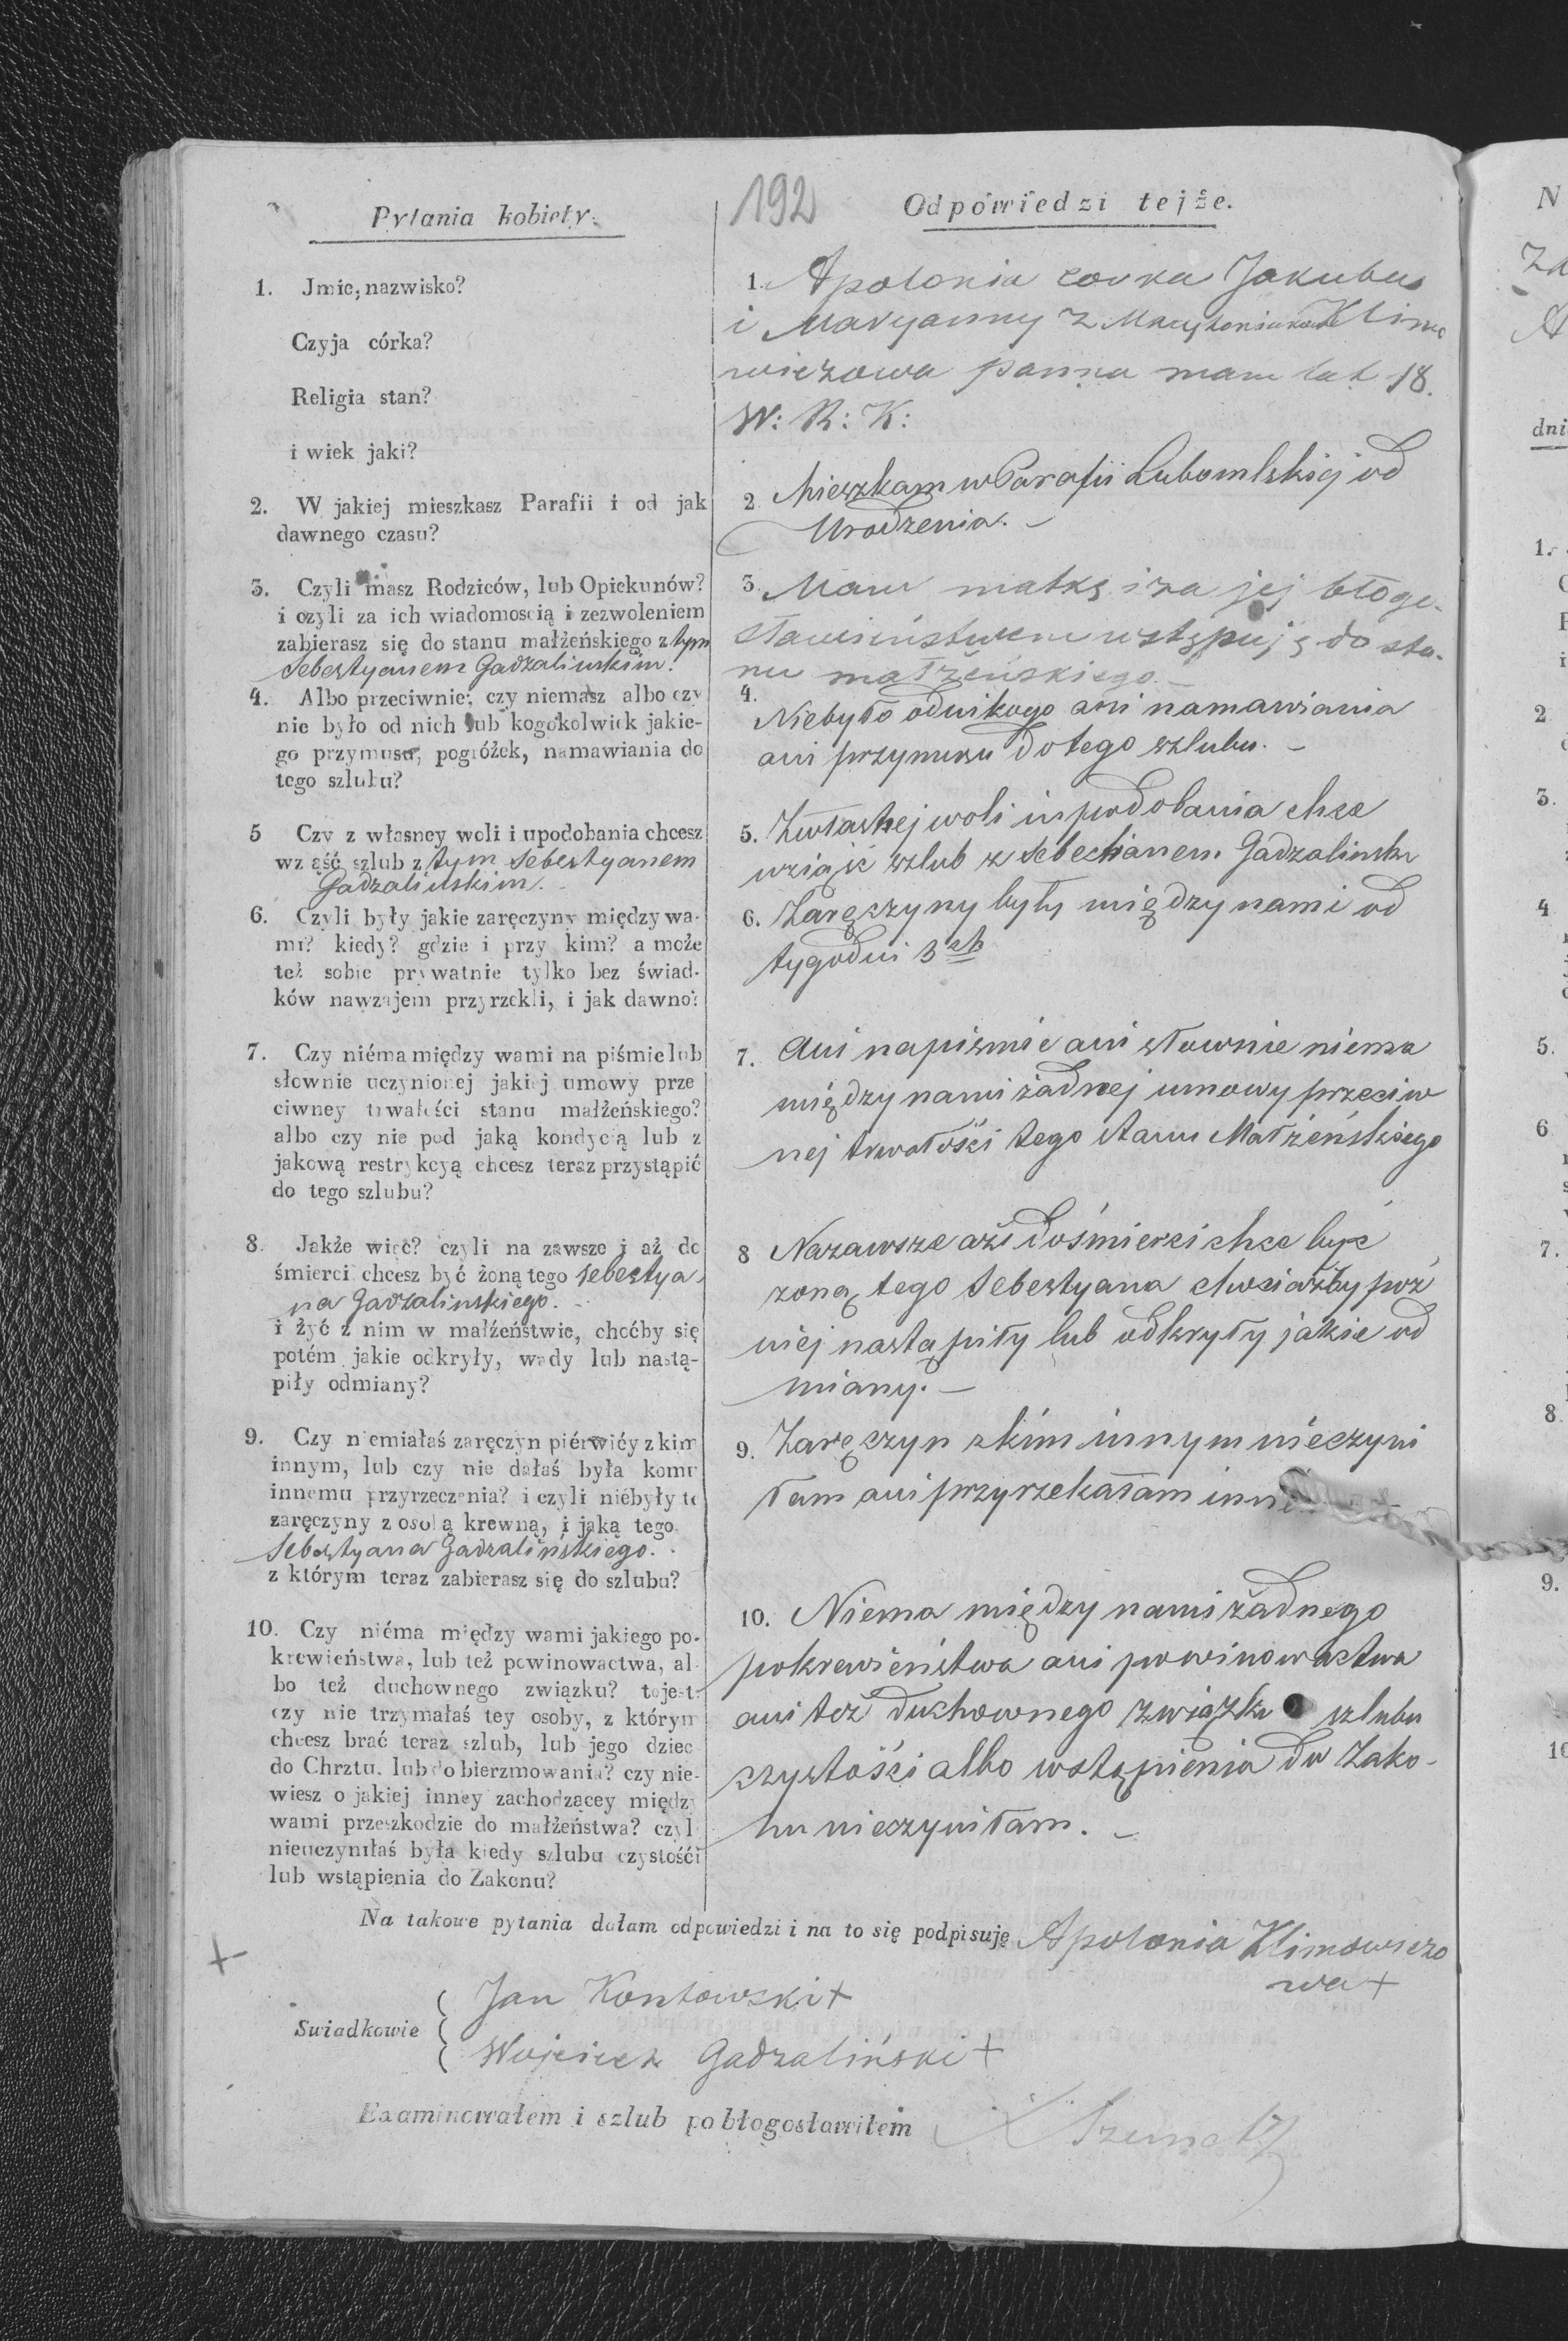 192
Pytania kobiety.
1. Jmie, nazwisko?
Czyja córka?
Religia stan?
i wiek jaki?
2. W jakiej mieszkasz Parafii i od jak
dawnego czasu?
3. Czyli masz Rodziców, lub Opiekunów?
i czyli za ich wiadomoscią i zezwoleniem
zabierasz się do stanu małżeńskiego z tym
Sebestyanem Gadzalinskim.
4. Albo przeciwnie, czy niemasz albo czy
nie było od nich lub kogokolwiek jakie-
go przymusu, pogróżek, namawiania do
tego szlubu?
5 Czy z własney woli i upodobania chcesz
wziąść szlub z tym Sebestyanem
Gadzalinskim.
6. Czyli były jakie zaręczyny między wa-
mi? kiedy? gdzie i przy kim? a może
też sobie prywatnie tylko bez świad-
ków nawzajem przyrzekli, i jak dawno?
7. Czy niéma między wami na piśmie lub
słownie uczynionej jakiej umowy prze
ciwney trwałości stanu małżeńskiego?
albo czy nie pod jaką kondycią lub z
jakową restrykcyą chcesz teraz przystąpić
do tego szlubu?
8. Jakże więc? czyli na zawsze i aż do
śmierci chcesz być żoną tego Sebestya
na Gadzalinskiego.
i żyć z nim w małżeństwie, choćby się
potém jakie odkryły, wady lub nastą-
piły odmiany?
9. Czy niemiałaś zaręczyn piérwiéy z kim
innym, lub czy nie dałaś była komu
innemu przyrzeczenia? i czyli niébyły te
zaręczyny z osobą krewną, i jaką tego
Sebestyana Gadzalińskiego.
z którym teraz zabierasz się do szlubu?
10. Czy niéma między wami jakiego po-
krewieństwa, lub też powinowactwa, al-
bo też duchownego związku? to jest:
czy nie trzymałaś tey osoby, z którym
chcesz brać teraz szlub, lub jego dziec
do Chrztu, lub do bierzmowania? czy nie-
wiesz o jakiej inney zachodzącey między
wami przeszkodzie do małżeństwa? czyl
nieuczyniłaś była kiedy szlubu czystośći
lub wstąpienia do Zakonu?
Odpowiedzi tejże.
1. Apolonia corka Jakuba
i Maryanny z Klimo
wiczowa panna mam lat 18.
W: R: K:
2 Mieszkam w Parafii Lubomlskiej od
Urodzenia. –
3. Mam matkę i za jej błogo-
sławieństwem wstępuję do sta-
nu małżeńskiego –
4. Niebyło odnikogo ani namawiania
ani przymusu do tego szlubu. –
5. Zwłasnej woli i upodobania chce
wziąść szlub z Sebestianem Gadzalinsk
6. Zaręczyny były między nami od
tygodni 3ch
7. Ani napismie ani słownie niema
między nami żadnej umowy przeciw
nej trwałości tego stanu Małżeńskiego
8 Nazawsze aż dośmierci chce być
zoną tego Sebestyana chociażby poź
niej nastąpiły lub odkryły jakie od
miany. –
9. Zaręczyn z kim innym nieczyni
łam ani przyrzekałam
10. Niema między nami żadnego
pokrewieństwa ani powinowactwa
ani też duchownego związku szlubu
czystości albo wstąpienia do Zako-
nu nieczyniłam. –
Na takowe pytania dałam odpowiedzi i na to się podpisuję Apolonia Klimowiczo
wa +
+
Swiadkowie
Jan Kontowski +
Wojciech Gadzaliński +
Examinowałem i szlub pobłogosławiłem X
N
Za
A
dni
1.
2
3.
4
5.
6
7.
8.
9.
10